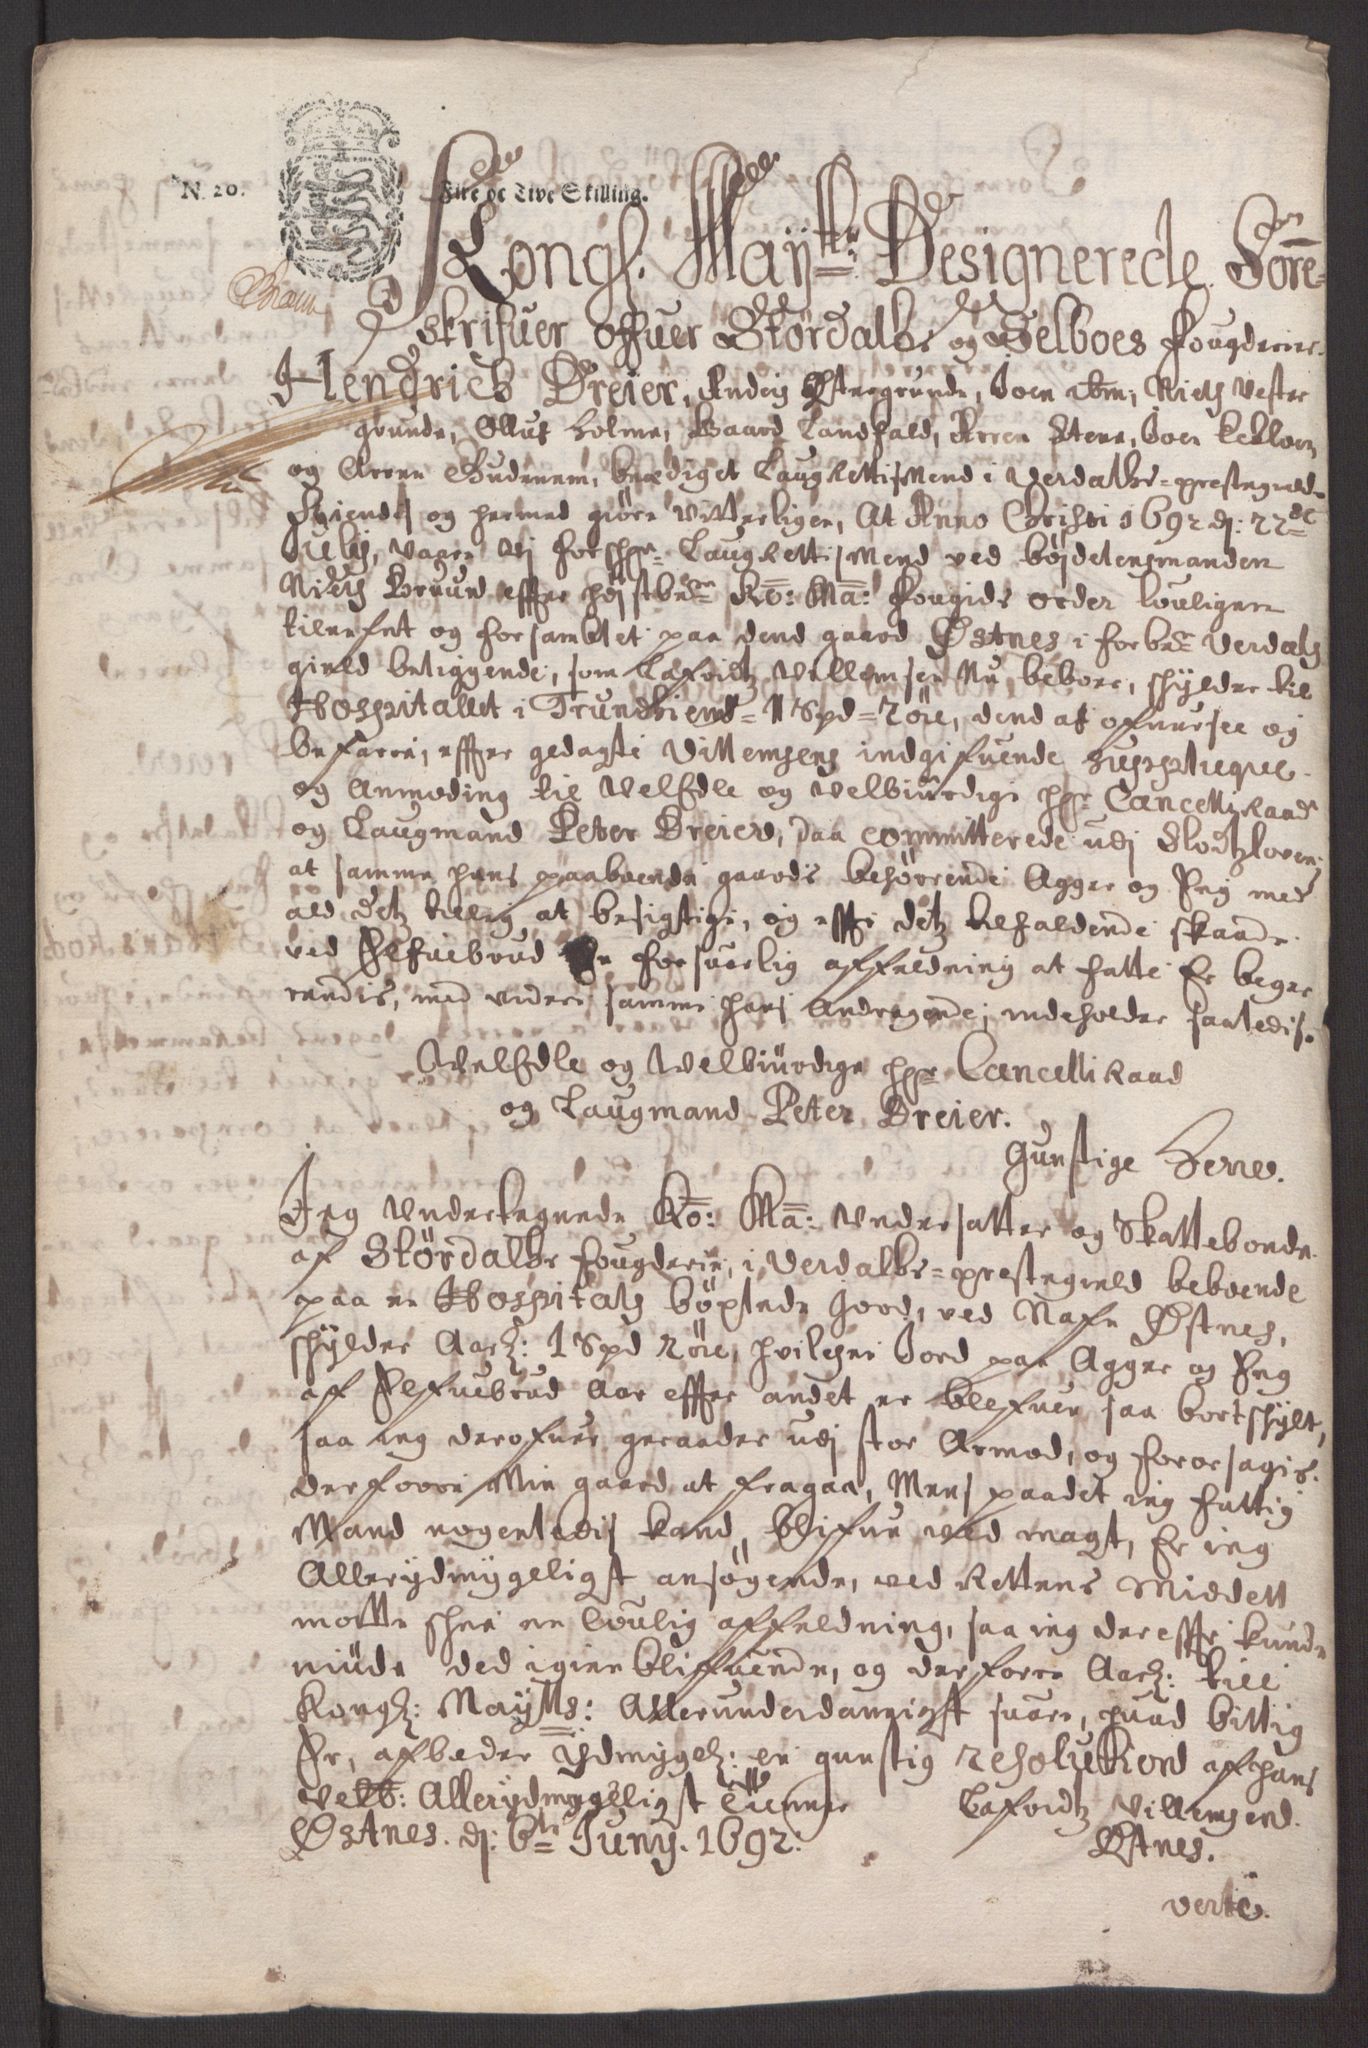 N. 20.
Fire oc Tive Skilling.
Kongl. Maÿtz Designerede Sore-
skrifuer offuer Stördals og Selboes fougderier
Hendrich Dreier, Anders Østergrunde, Joen Niels Vester
grunde, Olluf Holme, Baard Landfald, Arren Steene, Joen
og Arren Gudenem, beædiget Laugrettismend i Verdals-prestegield
Kiendis og hermed giöre vitterligen, At Anno Christi 1692 dj: 22de
July, vaare Vj forschr. Laugrettismend ved böjdelensmanden
Niels Brund effter höjstbem. Ko: Ma: fougids order louligen
tilnefnt og forsamblet paa dend gaard Østnes i forbe. Verdals
gield beliggende, som Laforidtz Villemsen Nu beboer, schylder til
Hospitallet i Trundhiem - 1 Spd - 2 öre, dend at ofuersee og
befarre, effter gedagte Villemsens indgifuende Supplique
og Anmoding til Velædle og velbiurdige hr. Cancelliraad
og Laugmand Peter Dreier, daa committerede udj Slodtzloven,
at samme hans paaboende gaards behörende Agger og Eng med
ald detz tilleg at besigtige, og effter detz tilfaldende skaade
ved Elfuebrud En forsuarlig affældning at satte Er begær
rendis, med videre samme hans Andragende, indeholder saaledis.
Velædle og Velbiurdige hr. Cancelliraad
og Laugmand Peter Dreier.
Gunstige Herre.
Jeg Undertegnede Ko: Ma: Undersatter og Skattebonde
af Stördals fougderie, i Verdals-prestegield beboende
paa en Hospitals böxlede Jord, ved Nafn Østnes,
schylder Aarl: 1 Spd 2 öre, hvilchen Jord paa Agger og Eng
af Elfuebrud Aar effter andet er blefuen saa bortschylt,
saa ieg derofuer geraader udj stor Armod, og foraarsagis
derfoore Min gaard at fragaa, Mens paadet ieg fattig
Mand nogenledis kand blifue ved magt, Er ieg
Allerydmygeligst ansögende, ved Rettens Middell
motte schee en loulig affældning, saa ieg dereffter kunde
niude ded igien blifuende, og derfore Aarl: till
Kongl: Maÿtts: Allerunderdanigst suare, huad billig
Er, afbeder Ydmygel: en gunstig resolution af hans
Velb: Allerydmygeligst Tienner Laforidtz Villemsend.
Østnes. dj: 6te Junÿ. 1692: Østnes.
verte.